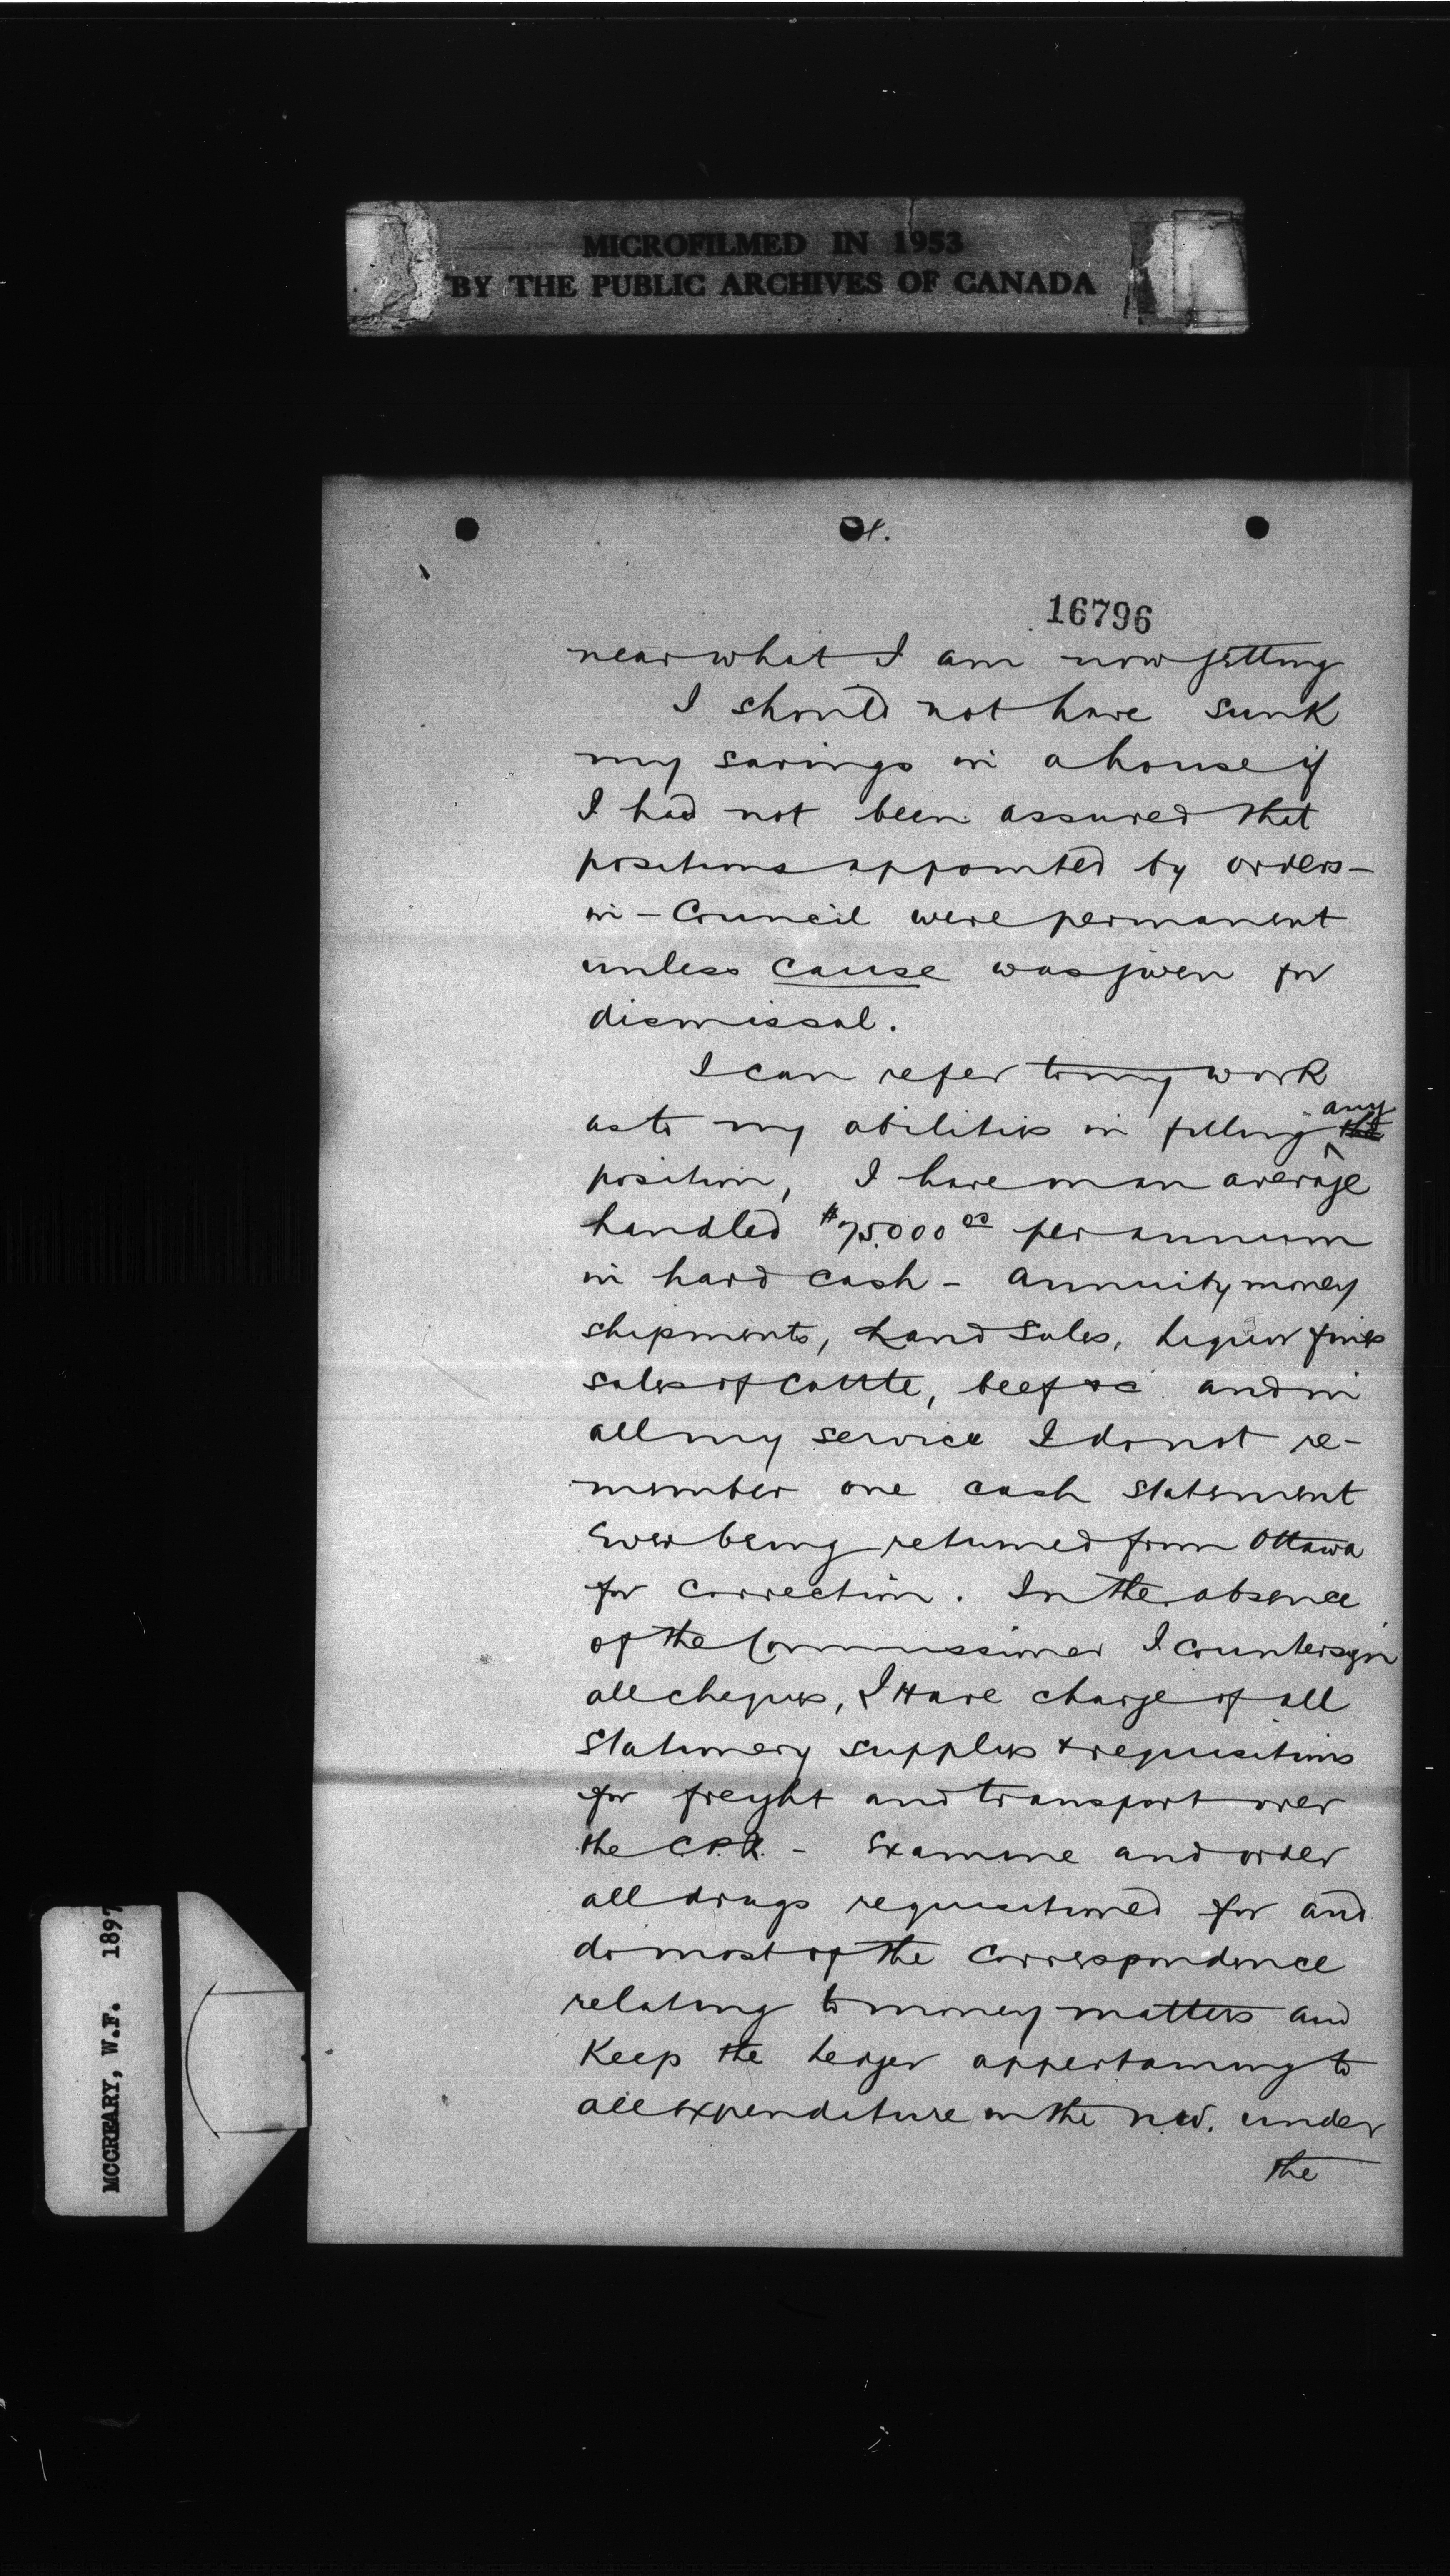 MICROFILMED IN 1953
BY THE PUBLIC ARCHIVES OF CANADA
16796
near what I am now getting
I should not have sunk
my savings in a house if
I had not been assured that
positions appointed by orders-
in-Council were permanent
unless cause was given for
dismissal.
I can refer to my work
as to my abilities in filling any the
position, I have on an average
handled $75.000 00 per annum
in hard cash - Annuity money
shipments, Land Sales, liquor fines
sales of Cattle, beef &c and in
all my service I do not re-
member one cash statement
ever being returned from Ottawa
for correction. In the absence
of the Commissioner I countersign
all cheques, I Have charge of all
Stationery supplies & requisitions
for freight and transport over
the C.P.R. - Examine and order
all drugs requisitioned for and
do most of the correspondence
relating to money matters and
Keep the ledger appertaining to
all expenditure in the N.W. under
the
MCCREARY, W.F. 1897